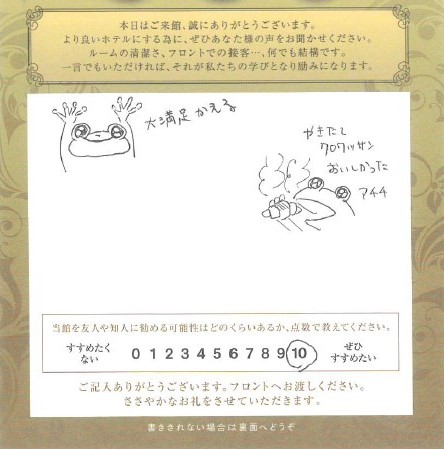 本日はご来館、誠にありがとうございます。
より良いホテルにする為に、ぜひあなた様の声をお聞かせください。
ルームの清潔さ、フロントでの接客…、何でも結構です。
一言でもいただければ、それが私たちの学びとなり励みになります。
大満足かえる
やきたて
クロワッサン
おいしかった
アチチ
当館を友人や知人に勧める可能性はどのくらいあるか、点数で教えてください。
すすめたく
ない
0 1 2 3 4 5 6 7 8 9 10
ぜひ
すすめたい
ご記入ありがとうございます。フロントへお渡しください。
ささやかなお礼をさせていただきます。
書ききれない場合は裏面へどうぞ